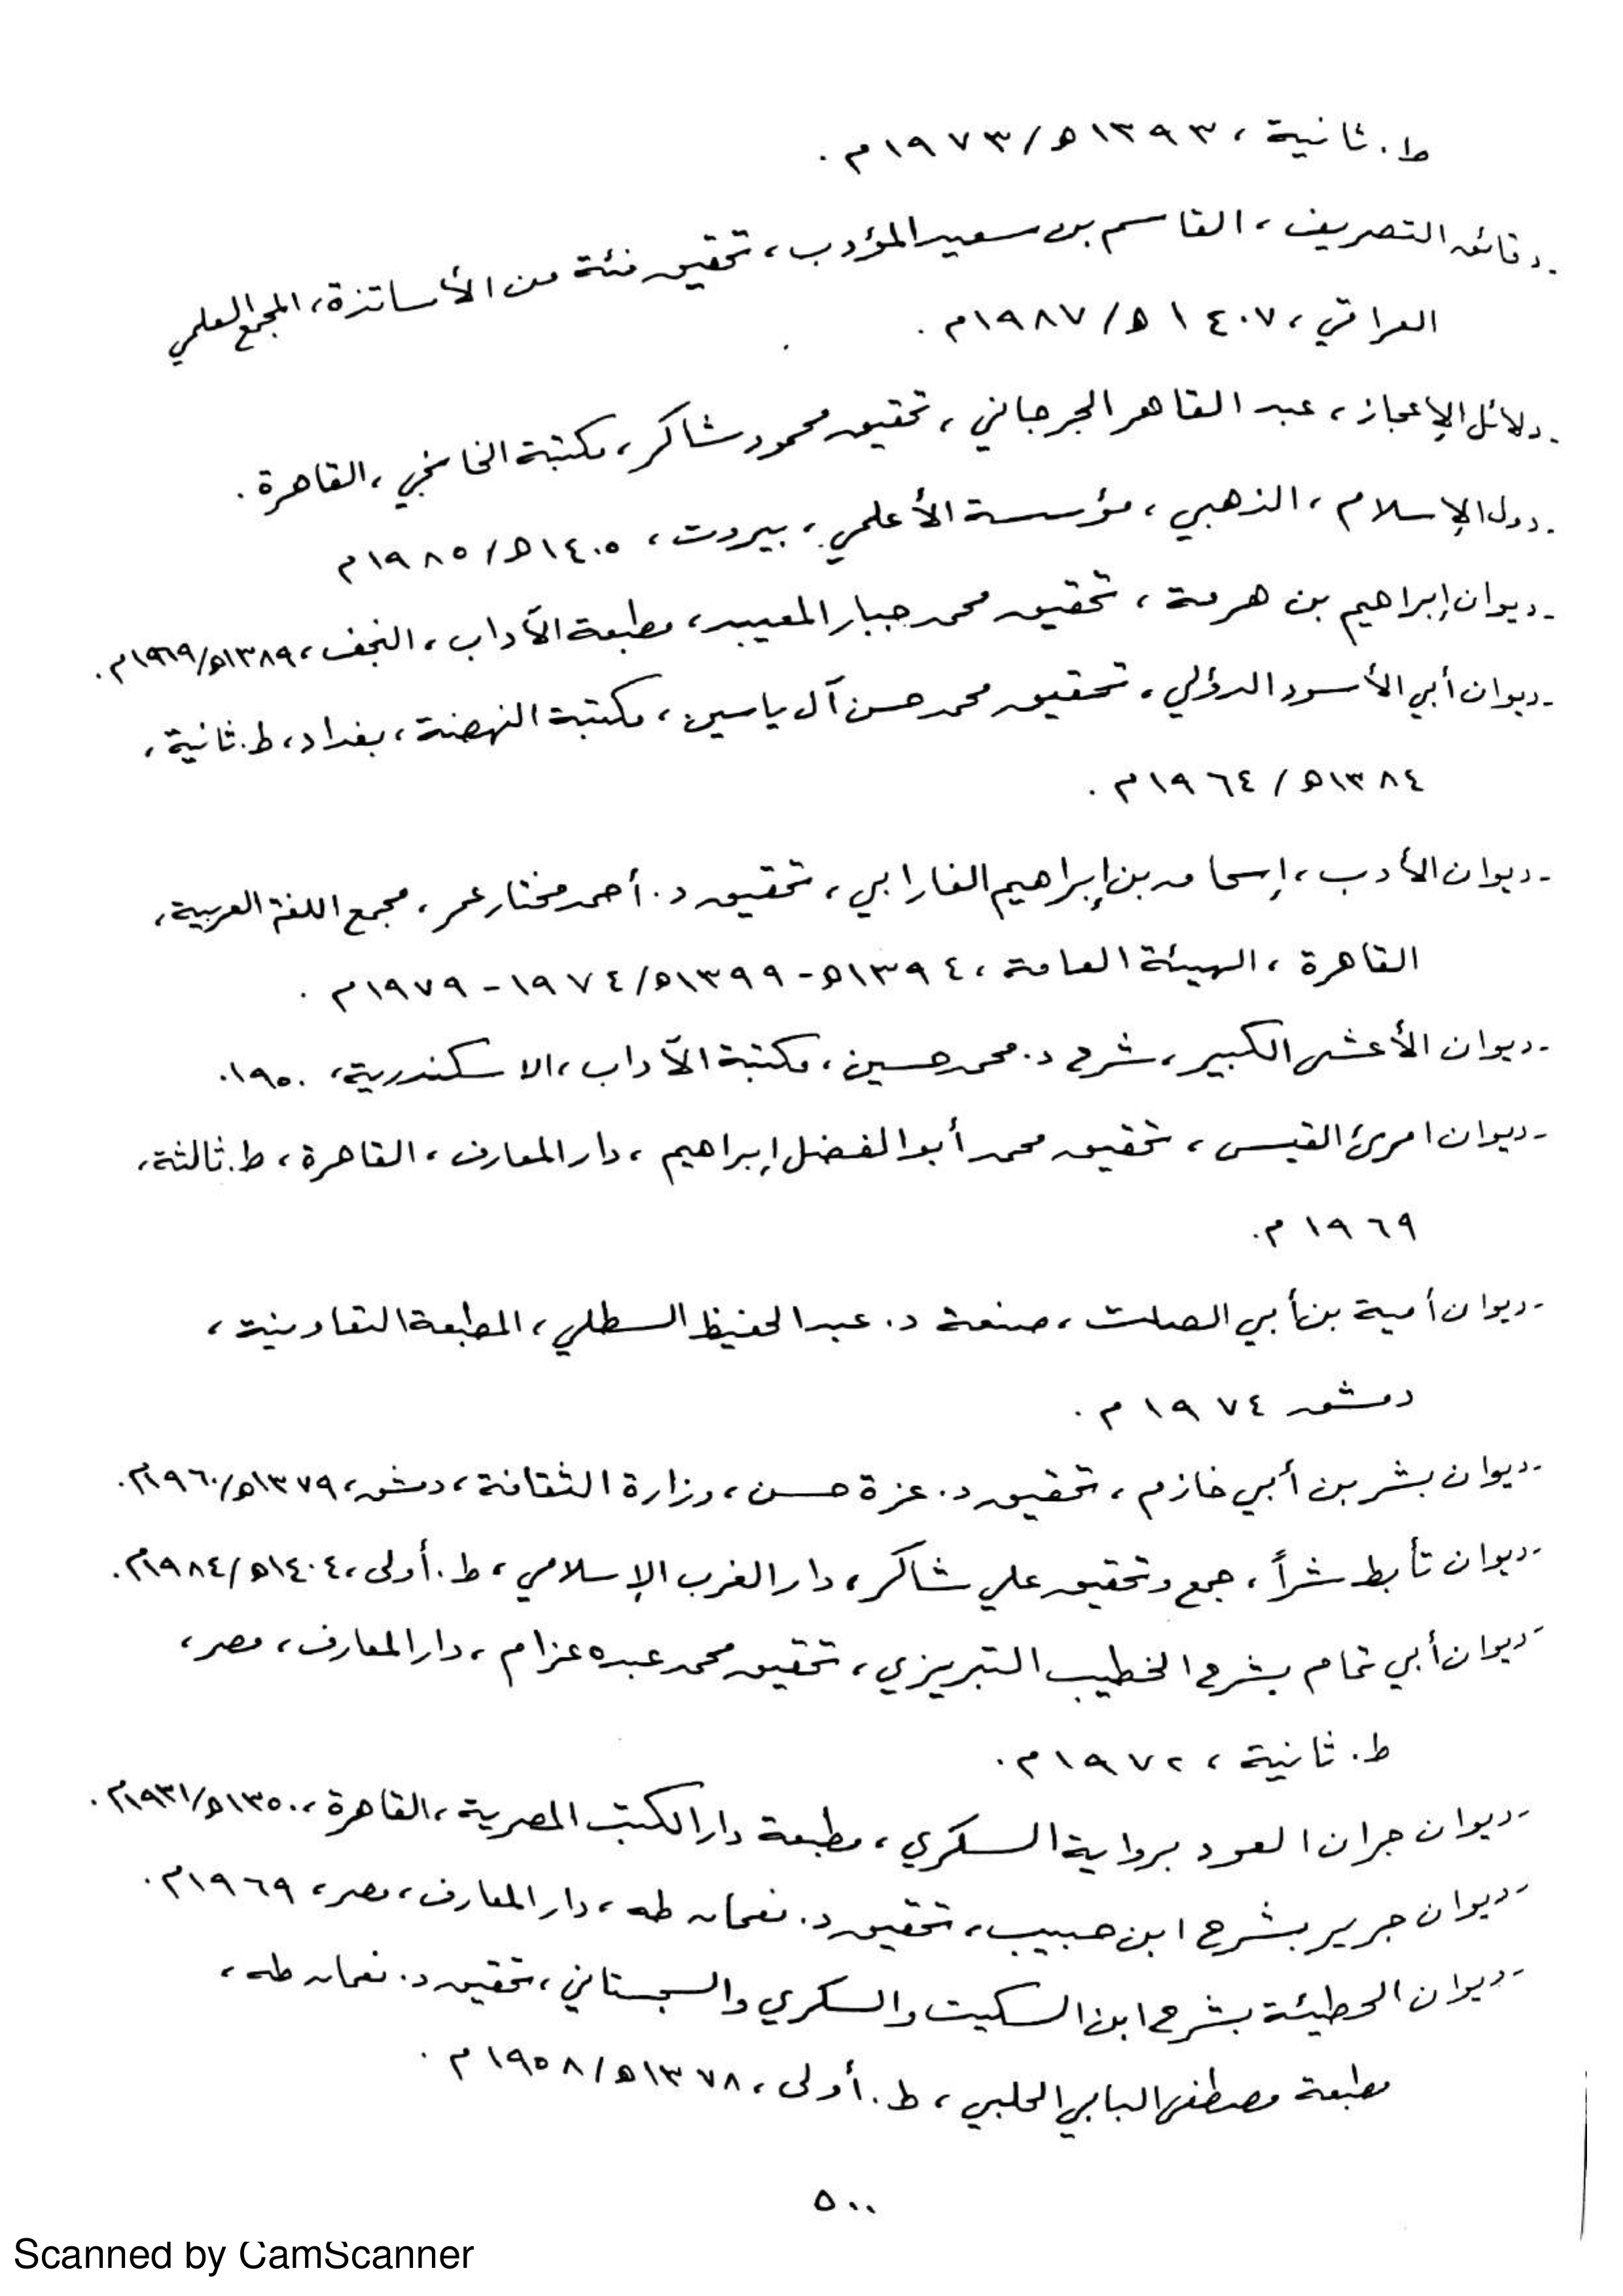 ط. ثانية ، ١٣٩٣ه/ ١٩٧٣م .
- دقائق التصريف ، القاسم بن سعيد المؤدب ، تحقيق فئة من الأساتذة ، المجمع العلمي
العراقي ، ١٤٠٧ه/ ١٩٨٧م .
- دلائل الإعجاز ، عبد القاهر الجرجاني ، تحقيق محمود شاكر ، مكتبة الخانجي ، القاهرة .
- دول الإسلام ، الذهبي ، مؤسسة الأعلمي ، بيروت ، ١٤٠٥ه/ ١٩٨٥م
- ديوان إبراهيم بن هرمة ، تحقيق محمد جبار المعيبد ، مطبعة الآداب ، النجف ، ١٣٨٩ه/ ١٩٦٩م .
- ديوان أبي الأسود الدؤلي ، تحقيق محمد حسن آل ياسين ، مكتبة النهضة ، بغداد ، ط. ثانية ،
١٣٨٤ه/ ١٩٦٤م .
- ديوان الأدب ، إسحاق بن إبراهيم الفارابي ، تحقيق د. أحمد مختار عمر ، مجمع اللغة العربية ،
القاهرة ، الهيئة العامة ، ١٣٩٤ه - ١٣٩٩ه/ ١٩٧٤ - ١٩٧٩م .
- ديوان الأعشى الكبير ، شرح د. محمد حسين ، مكتبة الآداب ، الاسكندرية ، ١٩٥٠.
- ديوان امرئ القيس ، تحقيق محمد أبو الفضل إبراهيم ، دار المعارف ، القاهرة ، ط. ثالثة ،
١٩٦٩م .
- ديوان أمية بن أبي الصلت ، صنعة د. عبد الحفيظ السطلي ، المطبعة التعاونية ،
دمشق ١٩٧٤م .
- ديوان بشر بن أبي خازم ، تحقيق د. عزة حسن ، وزارة الثقافة ، دمشق ، ١٣٧٩ه/ ١٩٦٠م .
- ديوان تأبط شراً ، جمع وتحقيق علي شاكر ، دار الغرب الإسلامي ، ط. أولى ، ١٤٠٤ه/ ١٩٨٤م .
- ديوان أبي تمام بشرح الخطيب التبريزي ، تحقيق محمد عبده عزام ، دار المعارف ، مصر ،
ط. ثانية ، ١٩٧٢م .
- ديوان جران العود برواية السكري ، مطبعة دار الكتب المصرية ، القاهرة ، ١٣٥٠ه/ ١٩٣١م .
- ديوان جرير بشرح ابن حبيب ، تحقيق د. نعمان طه ، دار المعارف ، مصر ، ١٩٦٩م .
- ديوان الحطيئة بشرح ابن السكيت والسكري والسجستاني ، تحقيق د. نعمان طه ،
مطبعة مصطفى البابي الحلبي ، ط. أولى ، ١٣٧٨ه/ ١٩٥٨م .
٥٠٠
Scanned by CamScanner